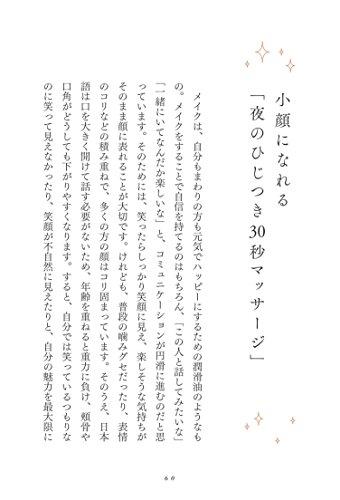 小顔になれる
「夜のひじつき30秒マッサージ」
メイクは、自分もまわりの方も元気でハッピーにするための潤滑油のようなも
の。メイクをすることで自信を持てるのはもちろん、「この人と話してみたいな」
「一緒にいてなんだか楽しいな」と、コミュニケーションが円滑に進むのだと思
っています。そのためには、笑ったらしっかり笑顔に見え、楽しそうな気持ちが
そのまま顔に表れることが大切です。けれども、普段の噛みグセだったり、表情
のコリなどの積み重ねで、多くの方の顔はコリ固まっています。そのうえ、日本
語は口を大きく開けて話す必要がないため、年齢を重ねると重力に負け、頬骨や
口角がどうしても下がりやすくなります。すると、自分では笑っているつもりな
のに笑って見えなかったり、笑顔が不自然に見えたりと、自分の魅力を最大限に
60